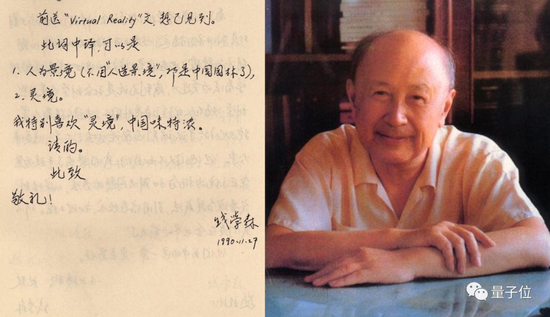 前送"Virtual Reality"文,想已见到。
此词中译,可以是
1. 人为景境(不用"人造景境",那是中国园林了),
2. 灵境。
我特别喜欢"灵境",中国味特浓。
请酌。
此致
敬礼!
钱学森
1990.11.27
量子位